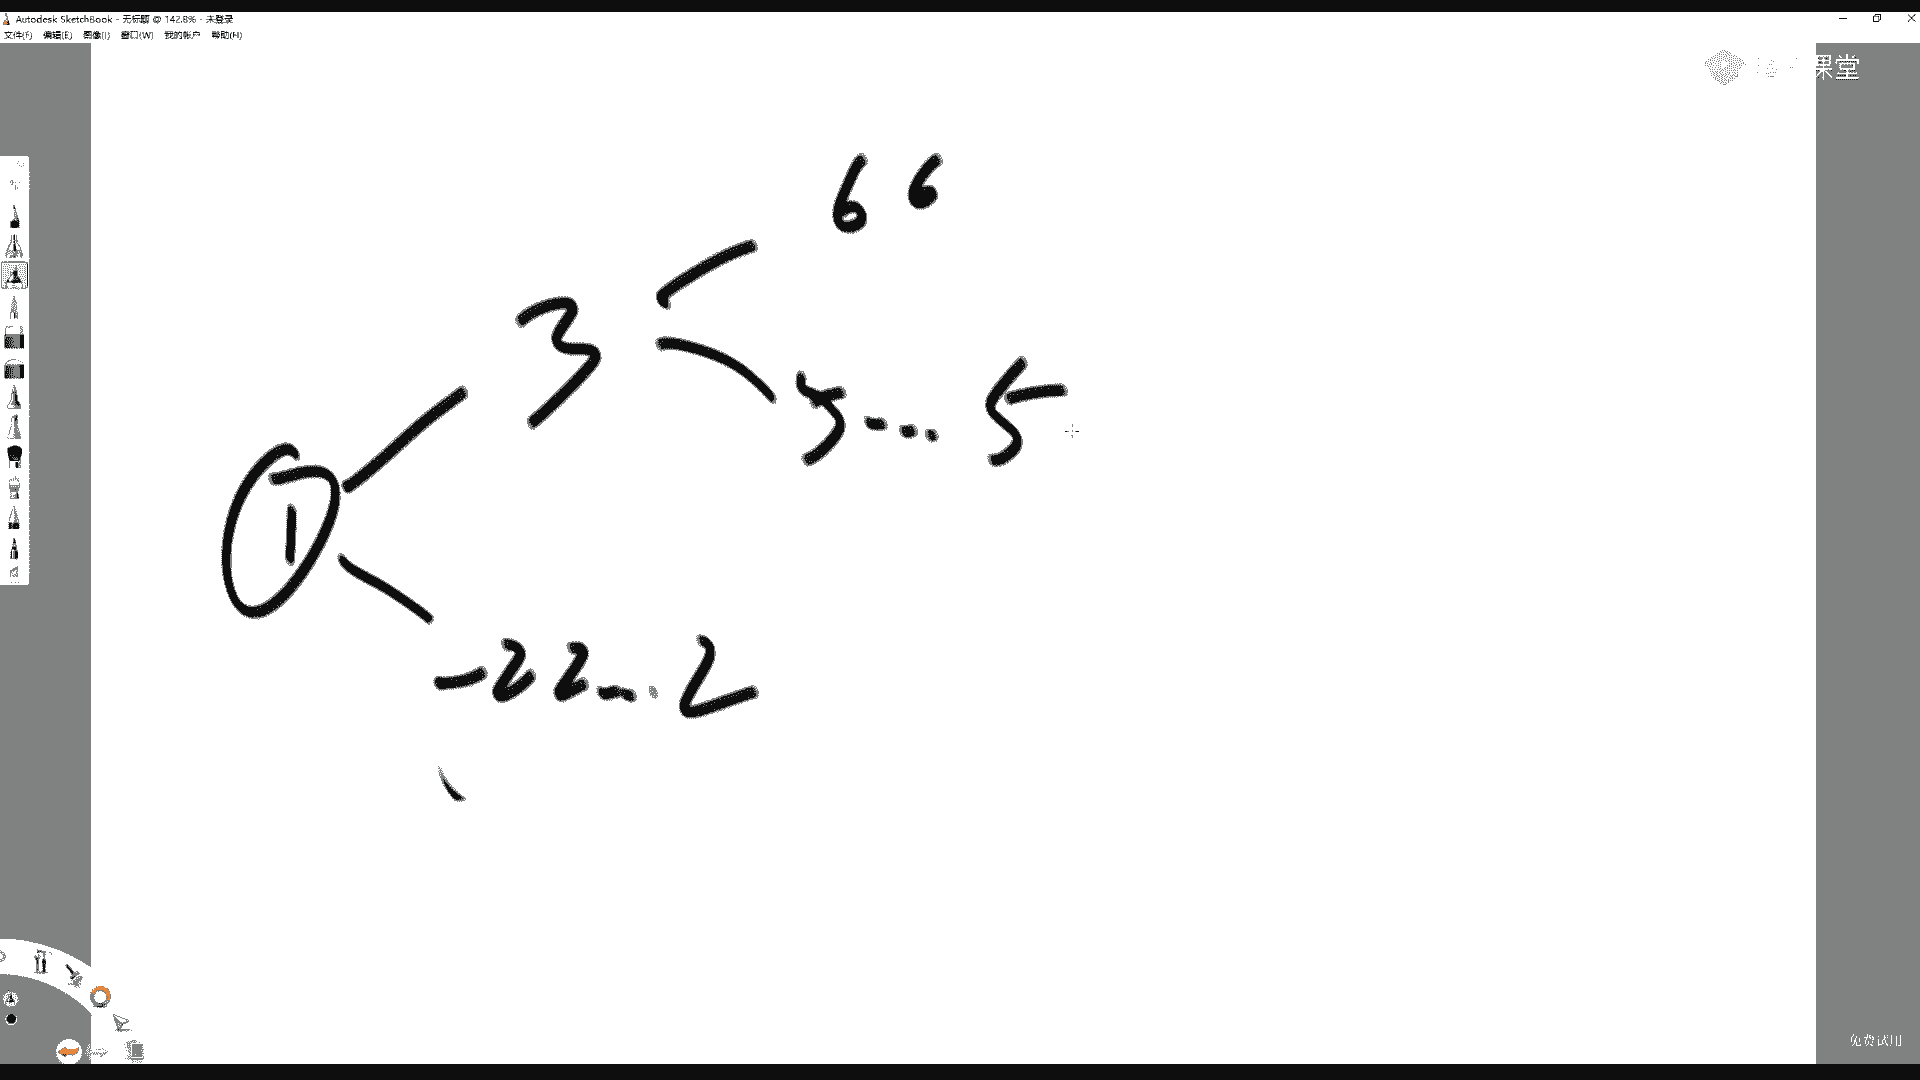 Autodesk SketchBook - 无标题 @ 142.8% - 未登录
文件(F) 编辑(E) 图像(I) 窗口(W) 我的帐户 帮助(H)
课堂
6 6
3
5... 5
1
-22... 2
免费试用